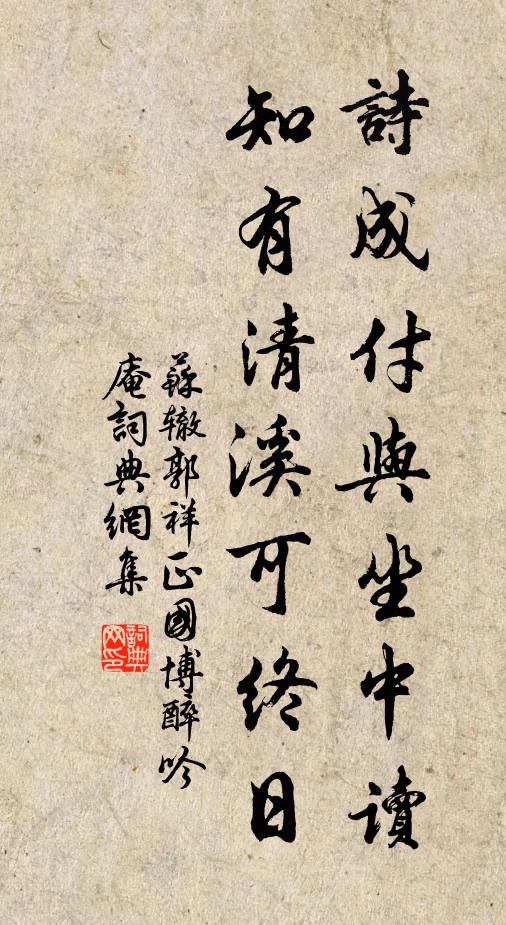 詩成付與坐中讀
知有清溪可終日
蘇辙郭祥正國博醉吟
庵詞典網集
詞典
网印